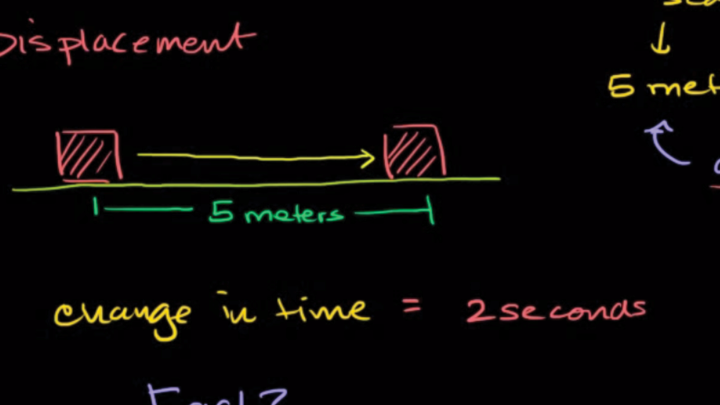 Displacement
5
5 meters
change in time = 2 seconds